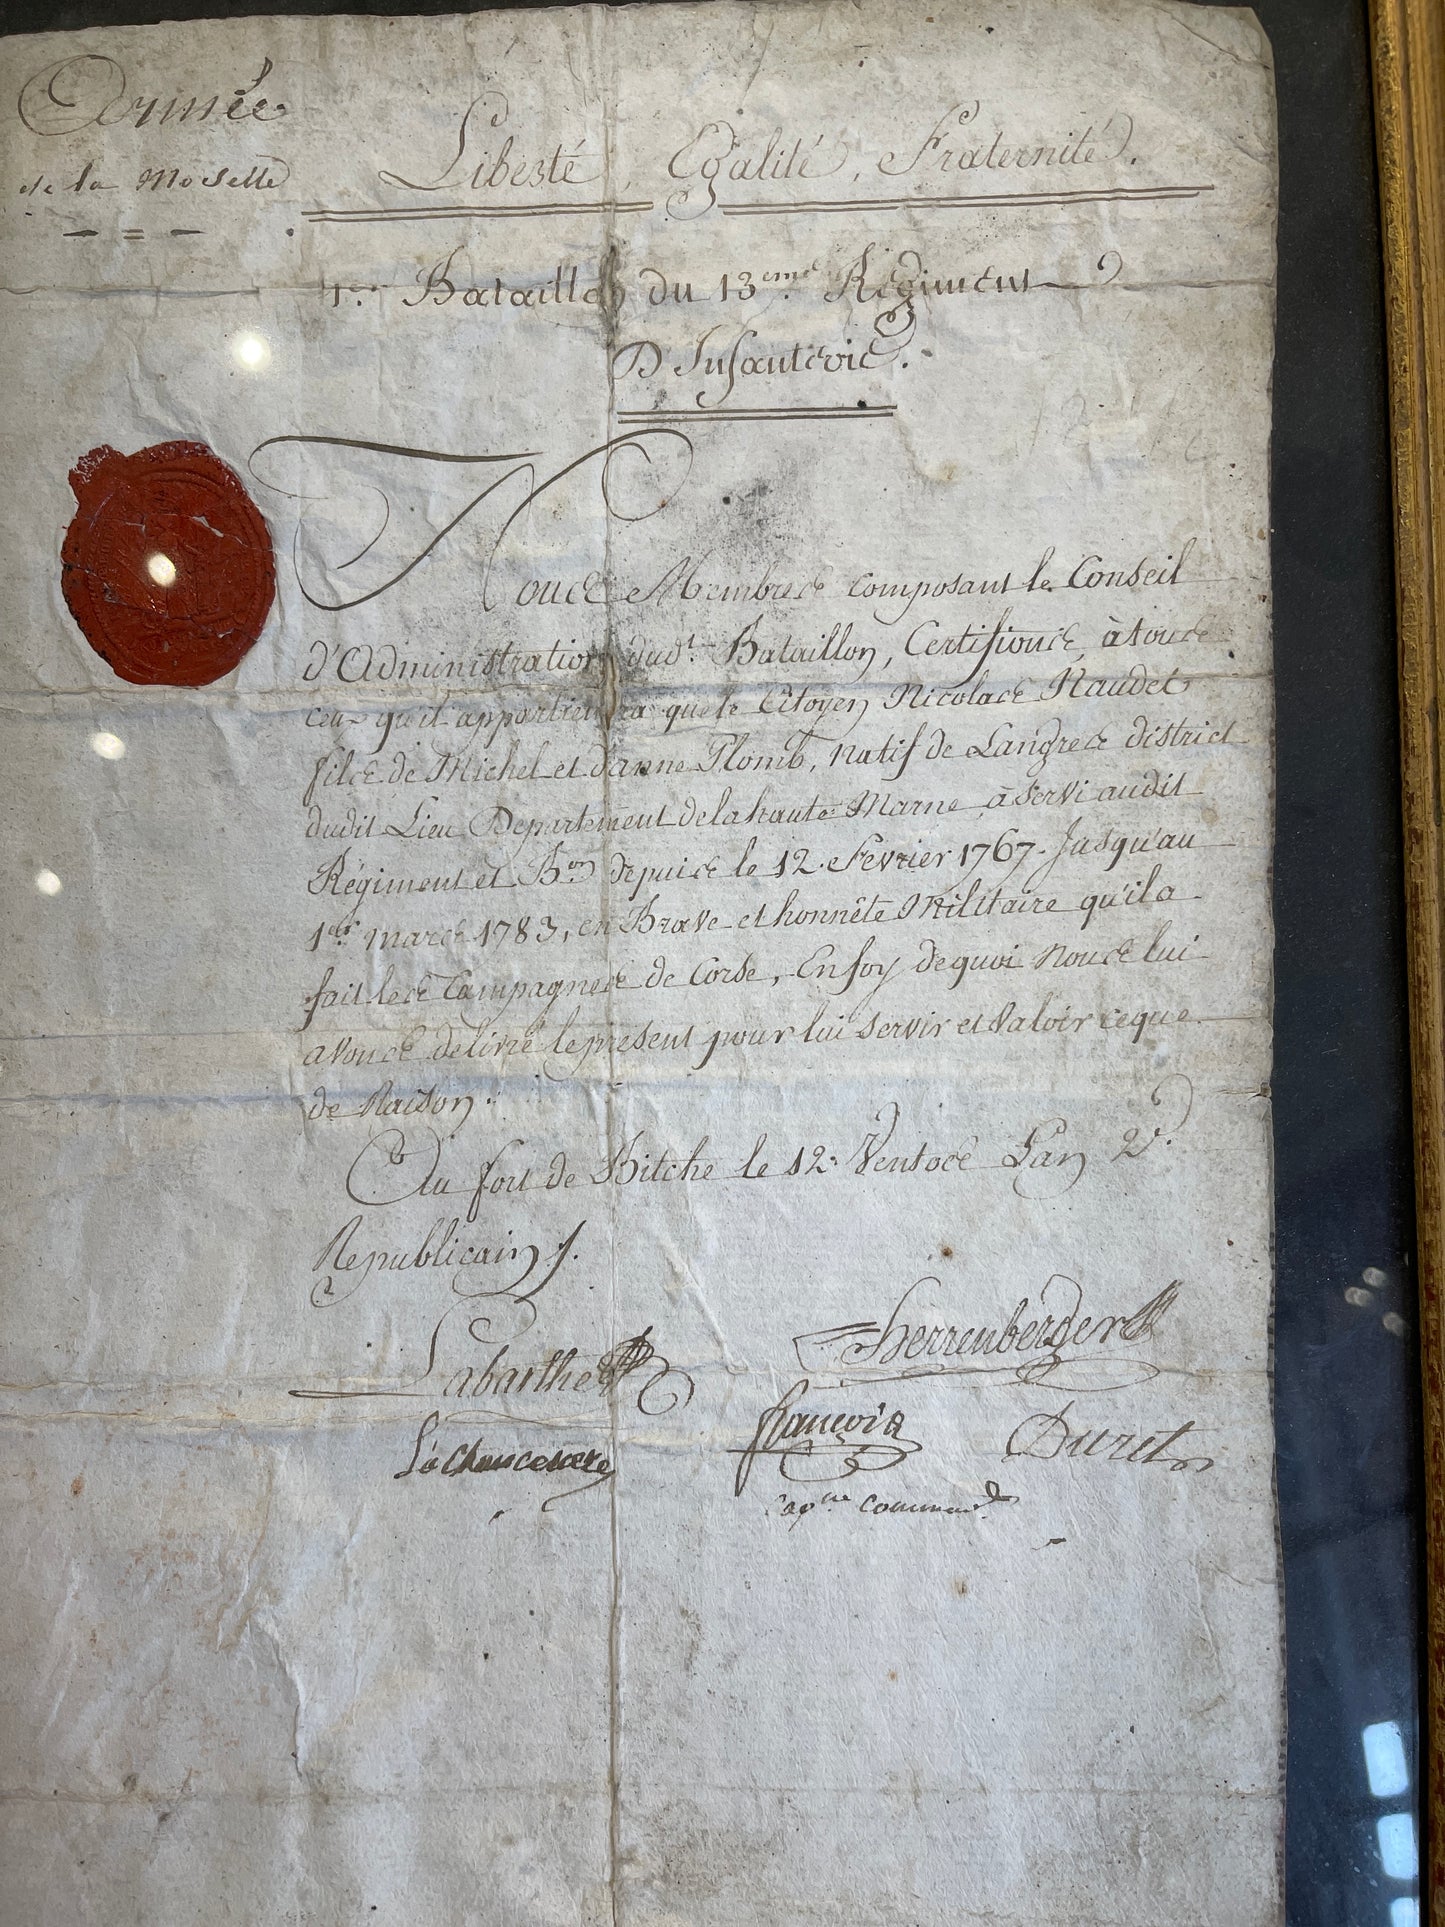 Armée
de la Moselle
Liberté, Egalité, Fraternité.
1er Bataillon du 13eme Régiment
D'Infanterie.
Nous Membres composant le Conseil
d'Administration dudt Bataillon, Certifions, à tous
ceux qu'il appartiendra que le Citoyen Nicolas Naudet
fils de Michel et d'anne Plomb, natif de Langres district
dudit Lieu Departement de la haute Marne, à servi audit
Régiment et Bon depuis le 12 Fevrier 1767. Jusqu'au
1er mars 1783, en Brave et honnête Militaire qu'il a
fait les Campagnes de Corse, En foy de quoi nous lui
avons delivré le present pour lui servir et valoir ce que
de Raison.
Au fort de Bitche le 12 Ventose L'an 2e
Republicain /.
Labarthe
Herrenberger
françois
Duret
capne command